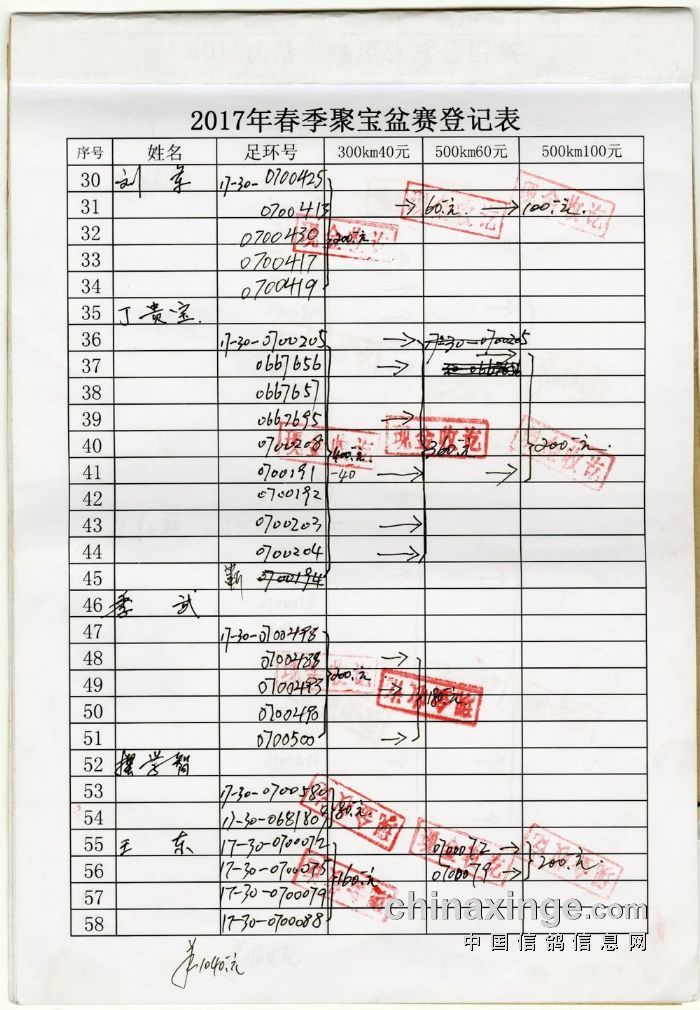 2017年春季聚宝盆赛登记表
序号 姓名 足环号 300km40元 500km60元 500km100元
30 刘 军 17-30-0700425
31 0700413 → 60元 → 100元.
32 0700430 200元
33 0700417
34 0700419
35 丁贵宝.
36 17-30-0700205 → 17-30-0700205
37 0667656 →
38 0667657
39 0667695 →
40 0700208 400元 360元 200元.
41 0700191 -40 → →
42 0700192
43 0700203 →
44 0700204 →
45 0700194
46 季 武
47 17-30-0700498
48 0700488 →
49 0700493 200元 → 180元
50 0700490
51 0700500 →
52 摆学智
53 17-30-0700580
54 17-30-0681809 80元
55 王 东 17-30-0700072 0700072 →
56 17-30-0700075 160元 0700079 → 200元.
57 17-30-0700079
58 17-30-0700088
现金收讫
现金收讫
现金收讫
现金收讫
现金收讫
现金收讫
现金收讫
现金收讫
现金收讫
现金收讫
现金收讫
1040元
chinaxinge.com
中国信鸽信息网